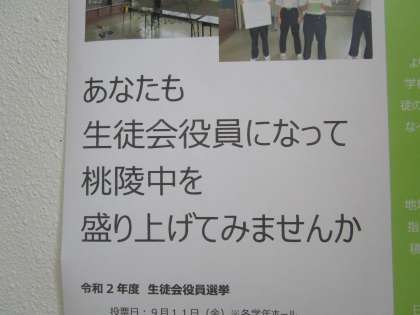 あなたも
生徒会役員になって
桃陵中を
盛り上げてみませんか
令和2年度 生徒会役員選挙
投票日：9月11日（金）※各学年ホール
よ
学校
徒の
なっ
地域
指
積